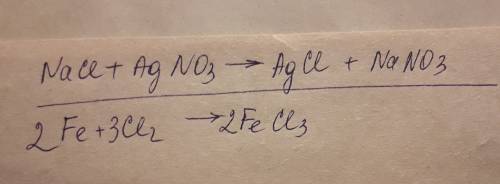 NaCl + AgNO₃ → AgCl + NaNO₃
2Fe + 3Cl₂ → 2FeCl₃